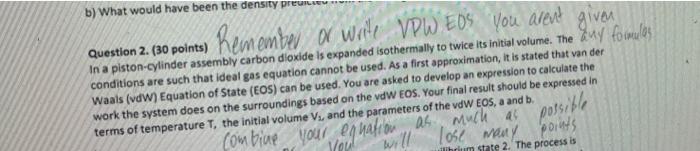 b) What would have been the density
Remember or write VDW EOS You arent given
any formulas
Question 2. (30 points)
In a piston-cylinder assembly carbon dioxide is expanded isothermally to twice its initial volume. The
conditions are such that ideal gas equation cannot be used. As a first approximation, it is stated that van der
Waals (vdW) Equation of State (EOS) can be used. You are asked to develop an expression to calculate the
work the system does on the surroundings based on the vdW EOS. Your final result should be expressed in
terms of temperature T, the initial volume V₁, and the parameters of the vdW EOS, a and b.
Combine your equation as much as possible
You will lose many points
state 2. The process is